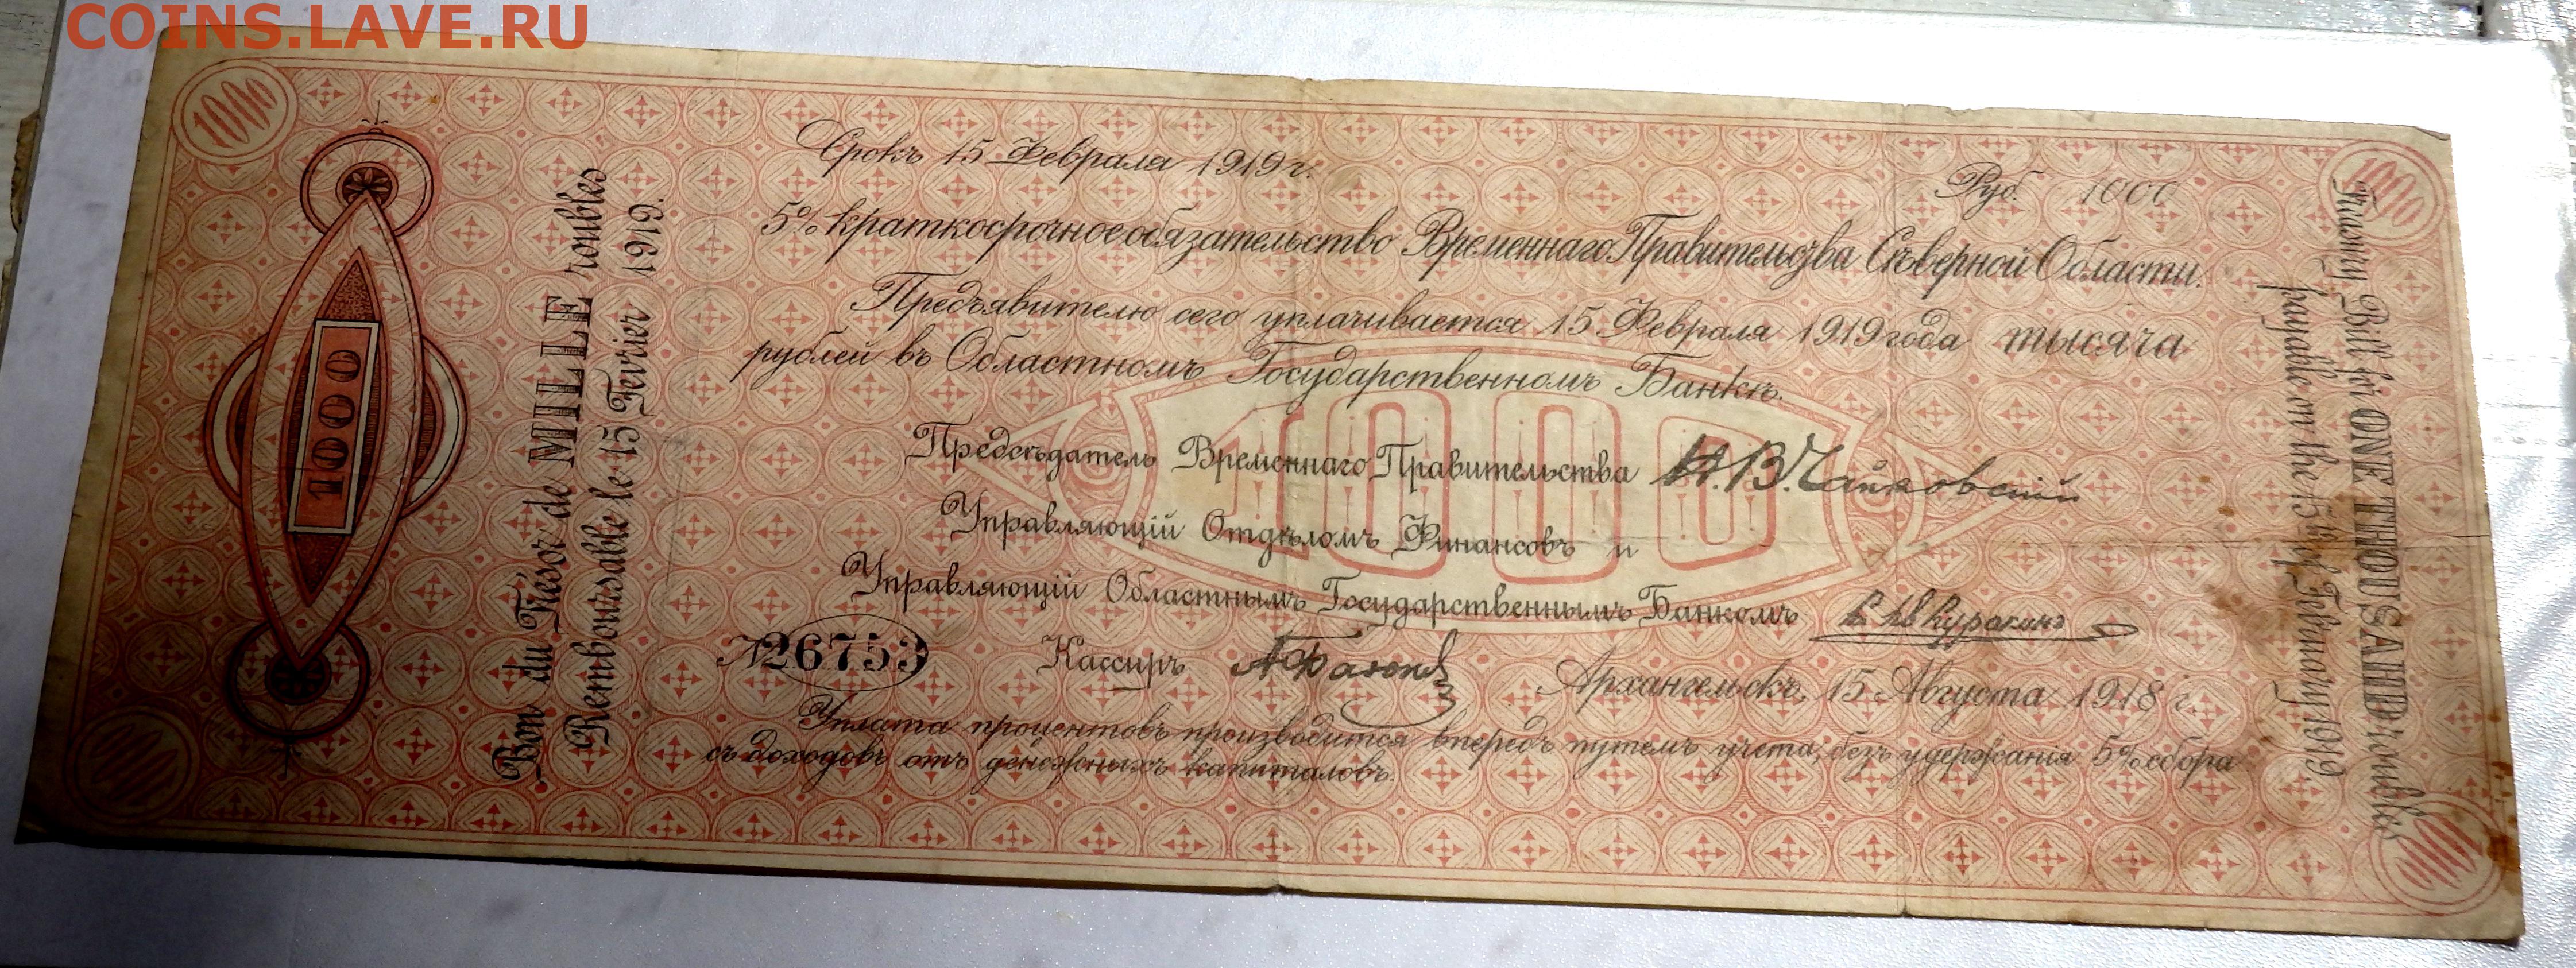 COINS.LAVE.RU
1000
1000
Срокъ 15 Февраля 1919 г.
Руб. 1000
5% краткосрочное обязательство Временнаго Правительства Сѣверной Области.
Предъявителю сего уплачивается 15 Февраля 1919 года тысяча
рублей въ Областномъ Государственномъ Банкѣ.
1000
Предсѣдатель Временнаго Правительства Н.В.Чайковскій
Управляющій Отдѣломъ Финансовъ и
Управляющій Областнымъ Государственнымъ Банкомъ Куракинъ
№26753
Кассиръ
Архангельскъ, 15 Августа 1918 г.
Уплата процентовъ производится впередъ путемъ учета, безъ удержанія 5% сбора
съ доходовъ отъ денежныхъ капиталовъ.
1000
Bon du Trésor de MILLE roubles
Remboursable le 15 Fevrier 1919.
Treasury Bill for ONE THOUSAND roubles
payable on the 15th of February 1919
1000
1000